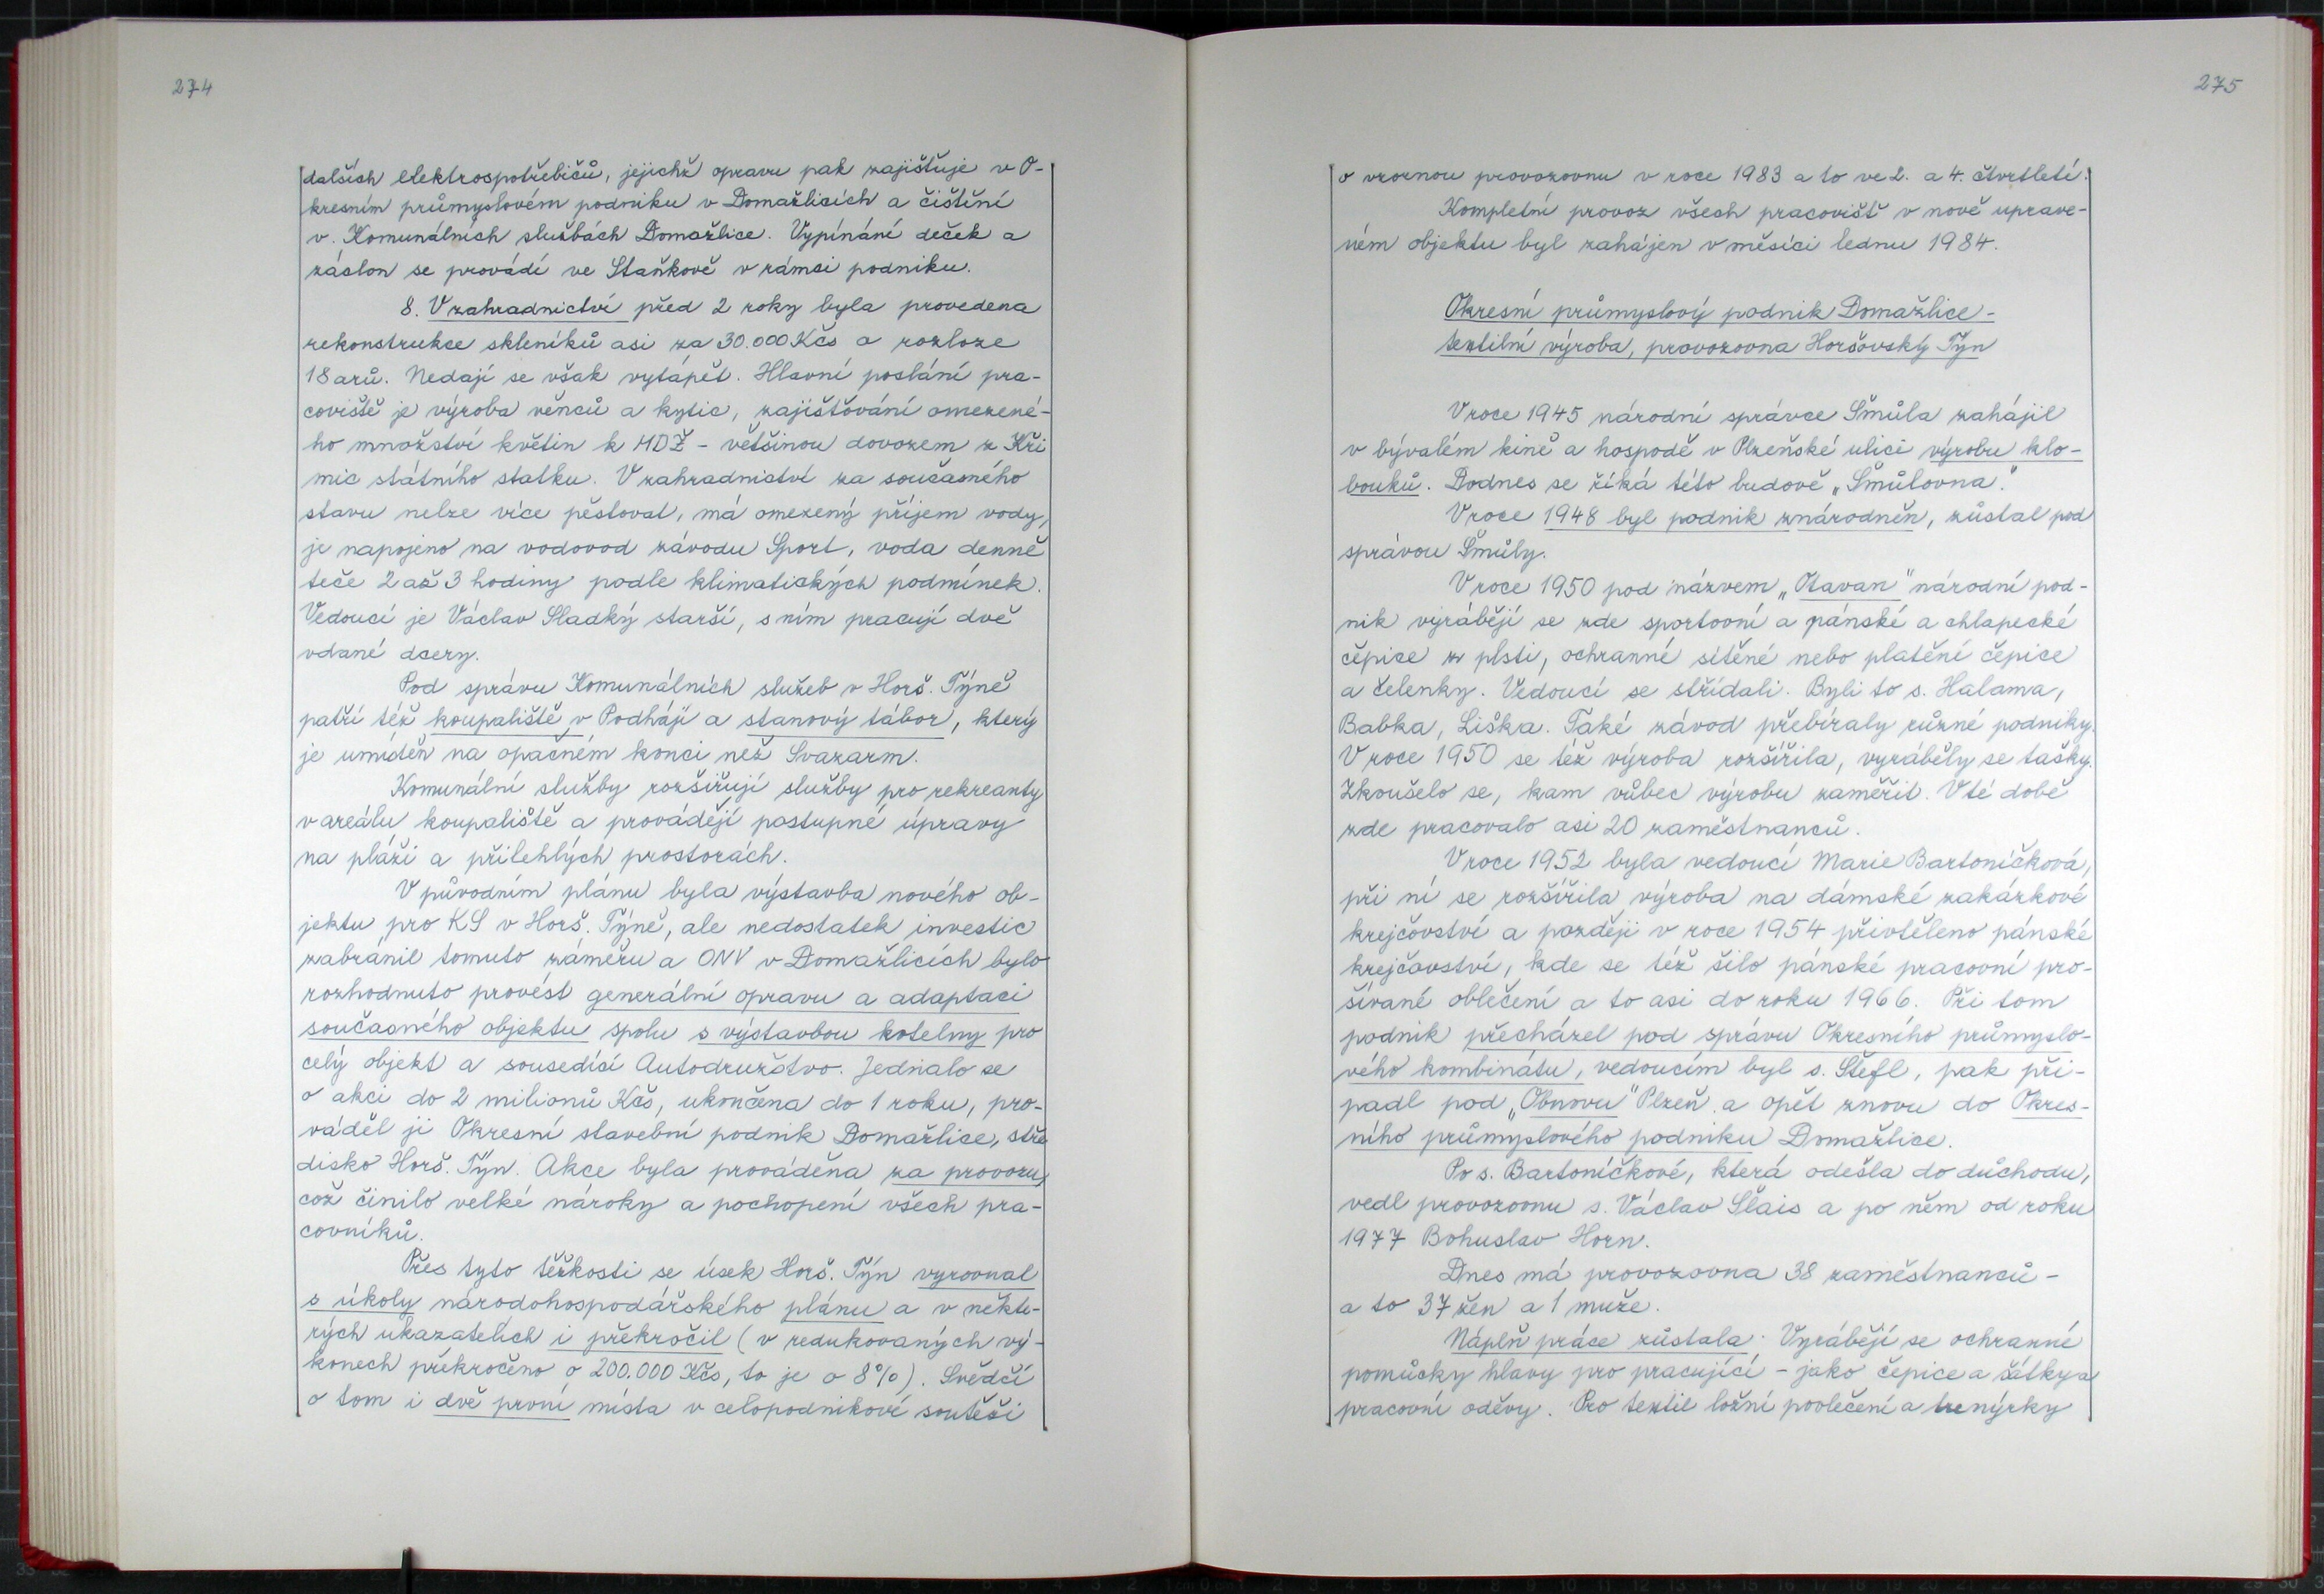 274
dalších elektrospotřebičů, jejichž opravu pak zajišťuje v O-
kresním průmyslovém podniku v Domažlicích a čištění
v. Komunálních službách Domažlice. Vypínání deček a
záslon se provádí ve Staňkově v rámci podniku.
8. V zahradnictví před 2 roky byla provedena
rekonstrukce skleníků asi za 30.000 Kčs o rozloze
18 arů. Nedají se však vytápět. Hlavní poslání pra-
coviště je výroba věnců a kytic, zajišťování omezené-
ho množství květin k MDŽ - většinou dovozem z Kři
mic státního statku. V zahradnictví za současného
stavu nelze více pěstovat, má omezený příjem vody,
je napojeno na vodovod závodu Sport, voda denně
teče 2 až 3 hodiny podle klimatických podmínek.
Vedoucí je Václav Sladký starší, s ním pracují dvě
vdané dcery.
Pod správu Komunálních služeb v Horš. Týně
patří též koupaliště v Podhájí a stanový tábor, který
je umístěn na opačném konci než Svazarm.
Komunální služby rozšiřují služby pro rekreanty
v areálu koupaliště a provádějí postupné úpravy
na pláži a přilehlých prostorách.
V původním plánu byla výstavba nového ob-
jektu pro KS v Horš. Týně, ale nedostatek investic
zabránil tomuto záměru a ONV v Domažlicích bylo
rozhodnuto provést generální opravu a adaptaci
současného objektu spolu s výstavbou kotelny pro
celý objekt a sousedící Autodružstvo. Jednalo se
o akci do 2 milionů Kčs, ukončena do 1 roku, pro-
váděl ji Okresní stavební podnik Domažlice, stře
disko Horš. Týn. Akce byla prováděna za provozu,
což činilo velké nároky a pochopení všech pra-
covníků.
Přes tyto těžkosti se úsek Horš. Týn vyrovnal
s úkoly národohospodářského plánu a v někte-
rých ukazatelích i překročil (v redukovaných vý-
konech překročeno o 200.000 Kčs, to je o 8%). Svědčí
o tom i dvě první místa v celopodnikové soutěži
275
o vzornou provozovnu v roce 1983 a to ve 2. a 4. čtvrtletí.
Kompletní provoz všech pracovišť v nově uprave-
ném objektu byl zahájen v měsíci lednu 1984.
Okresní průmyslový podnik Domažlice -
textilní výroba, provozovna Horšovský Týn
V roce 1945 národní správce Šmůla zahájil
v bývalém kině a hospodě v Plzeňské ulici výrobu klo-
bouků. Dodnes se říká této budově „Šmůlovna."
V roce 1948 byl podnik znárodněn, zůstal pod
správou Šmůly.
V roce 1950 pod názvem „Otavan" národní pod-
nik vyrábějí se zde sportovní a pánské a chlapecké
čepice z plsti, ochranné sítěné nebo platění čepice
a čelenky. Vedoucí se střídali. Byli to s. Halama,
Babka, Liška. Také závod přebíraly různé podniky.
V roce 1950 se též výroba rozšířila, vyráběly se tašky.
Zkoušelo se, kam vůbec výrobu zaměřit. V té době
zde pracovalo asi 20 zaměstnanců.
V roce 1952 byla vedoucí Marie Bartoníčková,
při ní se rozšířila výroba na dámské zakázkové
krejčovství a později v roce 1954 přivtěleno pánské
krejčovství, kde se též šilo pánské pracovní pro-
šívané oblečení a to asi do roku 1966. Při tom
podnik přecházel pod správu Okresního průmyslo-
vého kombinátu, vedoucím byl s. Štefl, pak při-
padl pod „Obnovu" Plzeň a opět znovu do Okres-
ního průmyslového podniku Domažlice.
Po s. Bartoníčkové, která odešla do důchodu,
vedl provozovnu s. Václav Šlais a po něm od roku
1977 Bohuslav Horn.
Dnes má provozovna 38 zaměstnanců -
a to 37 žen a 1 muže.
Náplň práce zůstala. Vyrábějí se ochranné
pomůcky hlavy pro pracující - jako čepice a šátky a
pracovní oděvy. Pro textil ložní povlečení a trenýrky